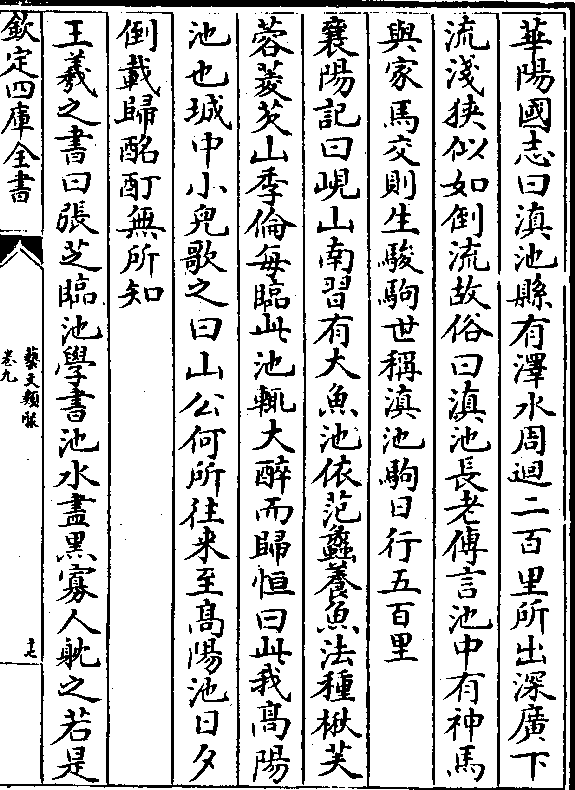 華陽國志曰滇池縣有澤水周迴二百里所出深廣下
流淺狹似如倒流故俗曰滇池長老傳言池中有神馬
與家馬交則生駿駒世稱滇池駒日行五百里
襄陽記曰峴山南習有大魚池依范蠡養魚法種楸芙
蓉菱芡山季倫每臨此池輒大醉而歸恒曰此我高陽
池也城中小兒歌之曰山公何所往來至高陽池日夕
倒載歸酩酊無所知
王羲之書曰張芝臨池學書池水盡黑寡人耽之若是
欽定四庫全書
藝文類聚
卷九
十七